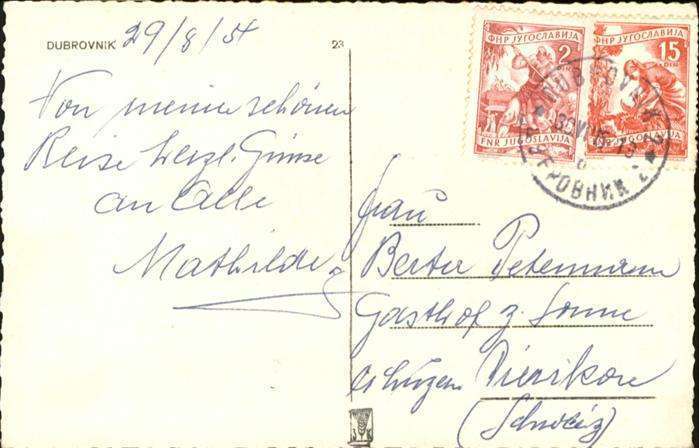 DUBROVNIK 29/8/54
23
Von meiner schönen
Reise herzl. Grüsse
an Alle
Mathilde
ФНР ЈУГОСЛАВИЈА
2
FNR JUGOSLAVIJA
ФНР ЈУГОСЛАВИЈА
15
FNR JUGOSLAVIJA
DUBROVNIK 2
ДУБРОВНИК 2
Frau
Berta Petermann
Gasthof z. Sonne
Dierikon
(Schweiz)